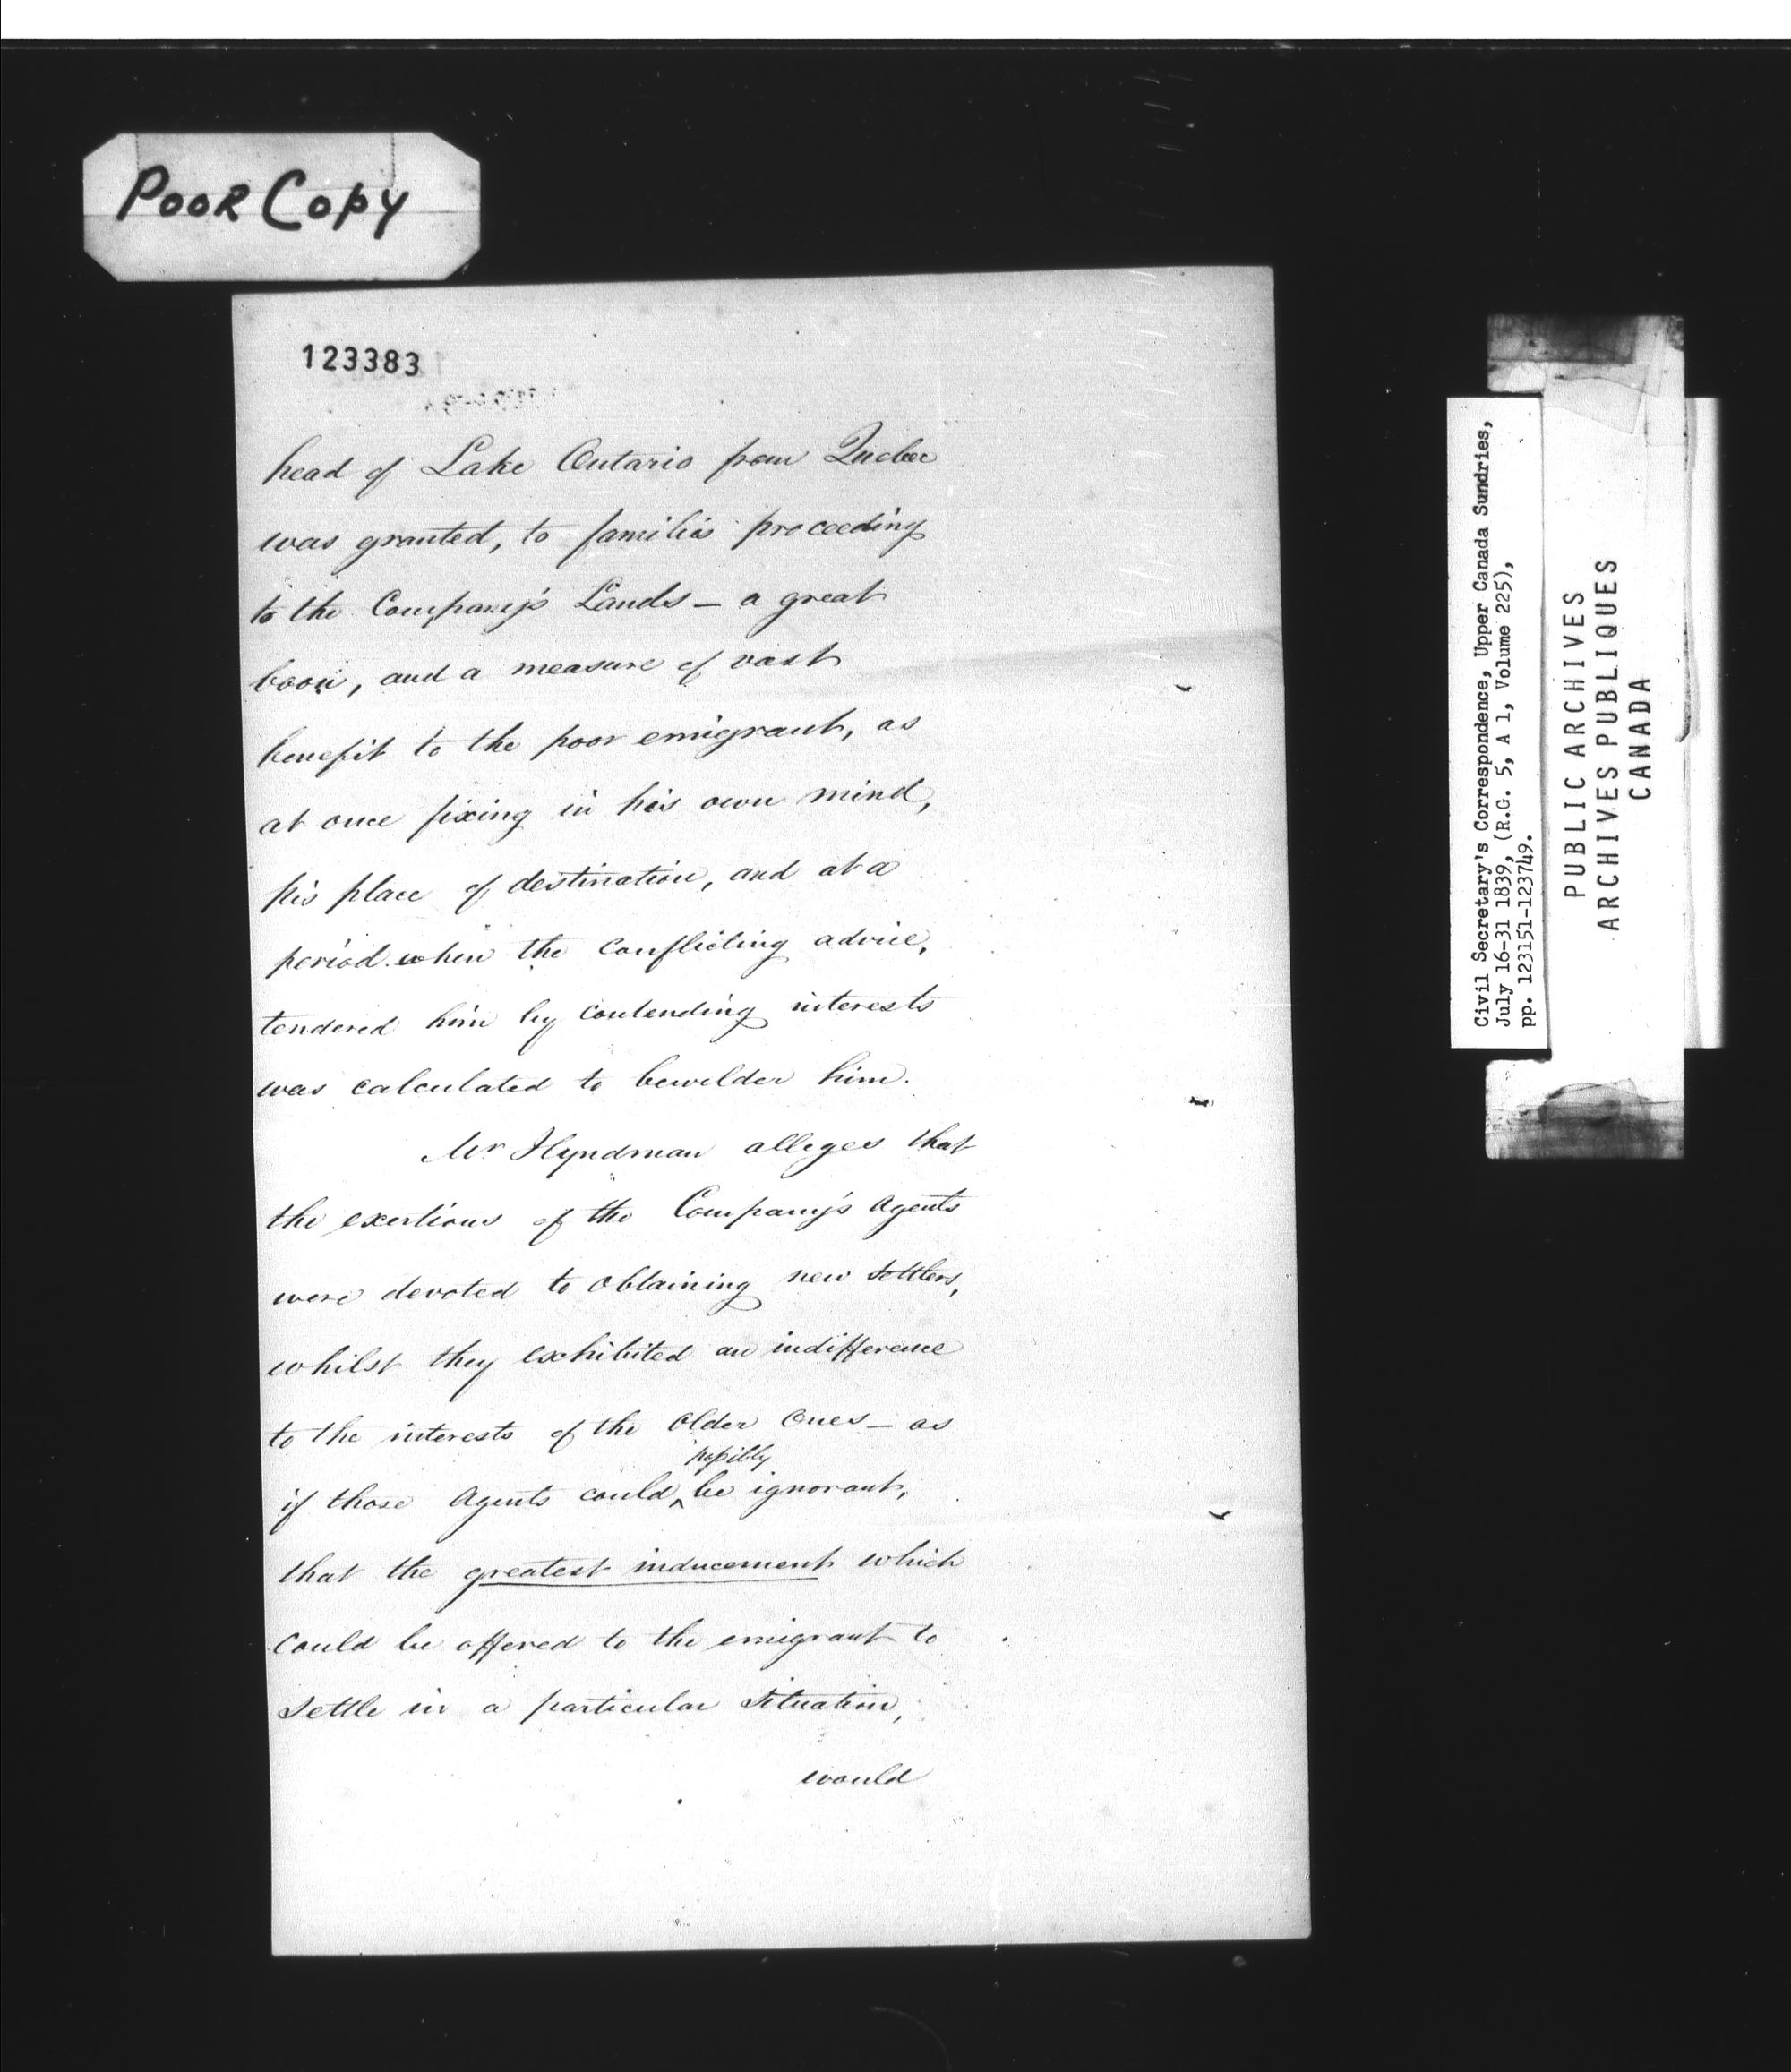 Poor Copy
123383
head of Lake Ontario from Quebec
was granted, to families proceeding
to the Company's Lands - a great
boon, and a measure of vast
benefit to the poor emigrant, as
at once fixing in his own mind,
his place of destination, and at a
period when the conflicting advice,
tendered him by contending interests
was calculated to bewilder him.
Mr Hyndman alleges that
the exertions of the Company's Agents
were devoted to obtaining new Settlers,
whilst they exhibited an indifference
to the interests of the Older Ones - as
possibly
if those Agents could ‸ be ignorant,
that the greatest inducement which
could be offered to the emigrant to
Settle in a particular Situation,
would
Civil Secretary's Correspondence, Upper Canada Sundries,
July 16-31 1839, (R.G. 5, A 1, Volume 225),
pp. 123151-123749.
PUBLIC ARCHIVES
ARCHIVES PUBLIQUES
CANADA